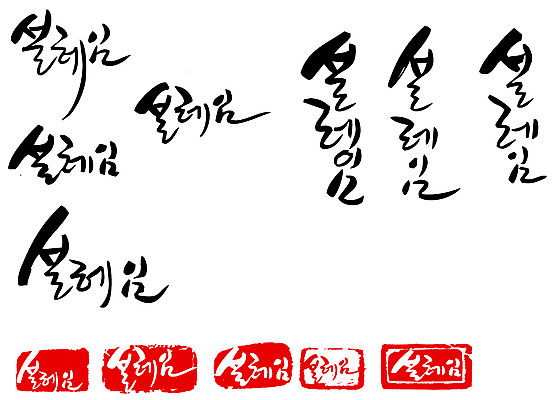 설레임
설레임
설레임
설레임
설레임
설레임
설레임
설레임
설레임
설레임
설레임
설레임